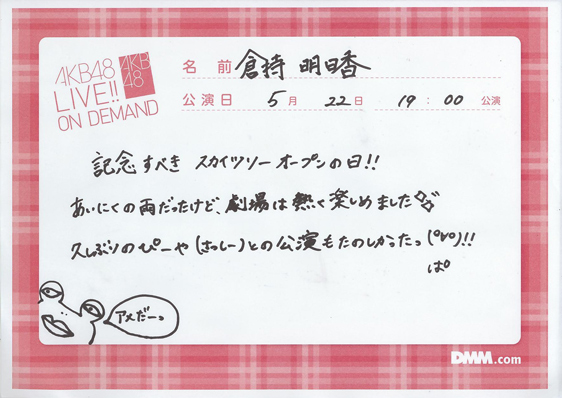 AKB48
LIVE!!
ON DEMAND
AKB
48
名前 倉持 明日香
公演日 5月 22日 19:00 公演
記念すべき スカイツリーオープンの日!!
あいにくの雨だったけど、劇場は熱く楽しめました
久しぶりのぴーや(さっしー)との公演もたのしかったっ(°∀°)!!
ぱ°
アメだーっ
DMM.com